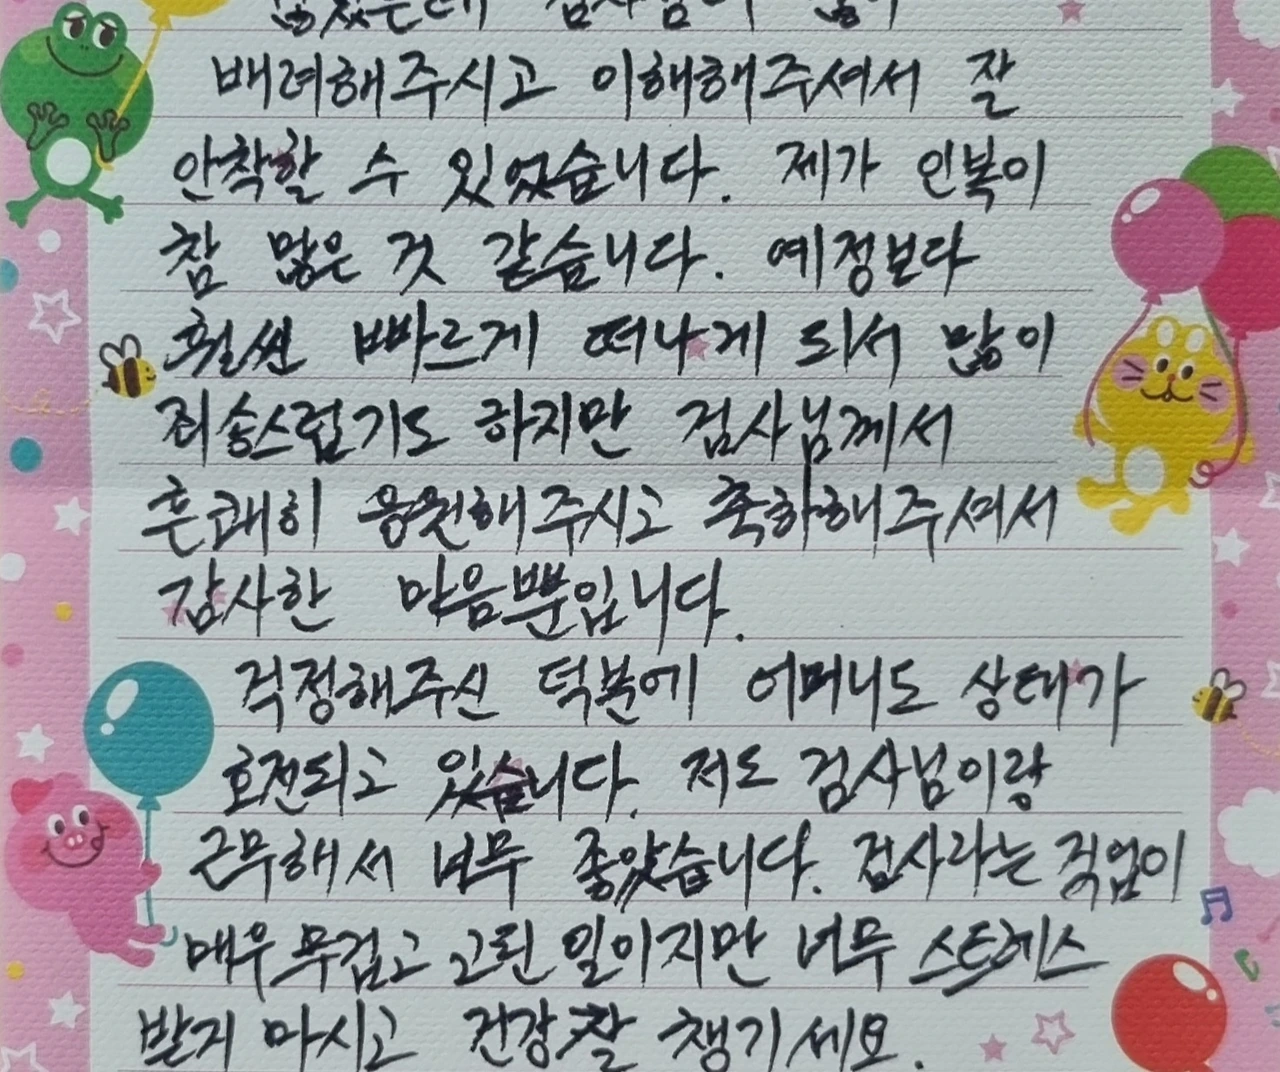 배려해주시고 이해해주셔서 잘
안착할 수 있었습니다. 제가 인복이
참 많은 것 같습니다. 예정보다
훨씬 빠르게 떠나게 되서 많이
죄송스럽기도 하지만 검사님께서
흔쾌히 응원해주시고 축하해주셔서
감사한 마음뿐입니다.
걱정해주신 덕분에 어머니도 상태가
호전되고 있습니다. 저도 검사님이랑
근무해서 너무 좋았습니다. 검사라는 직업이
매우 무겁고 고된 일이지만 너무 스트레스
받지 마시고 건강 잘 챙기세요.